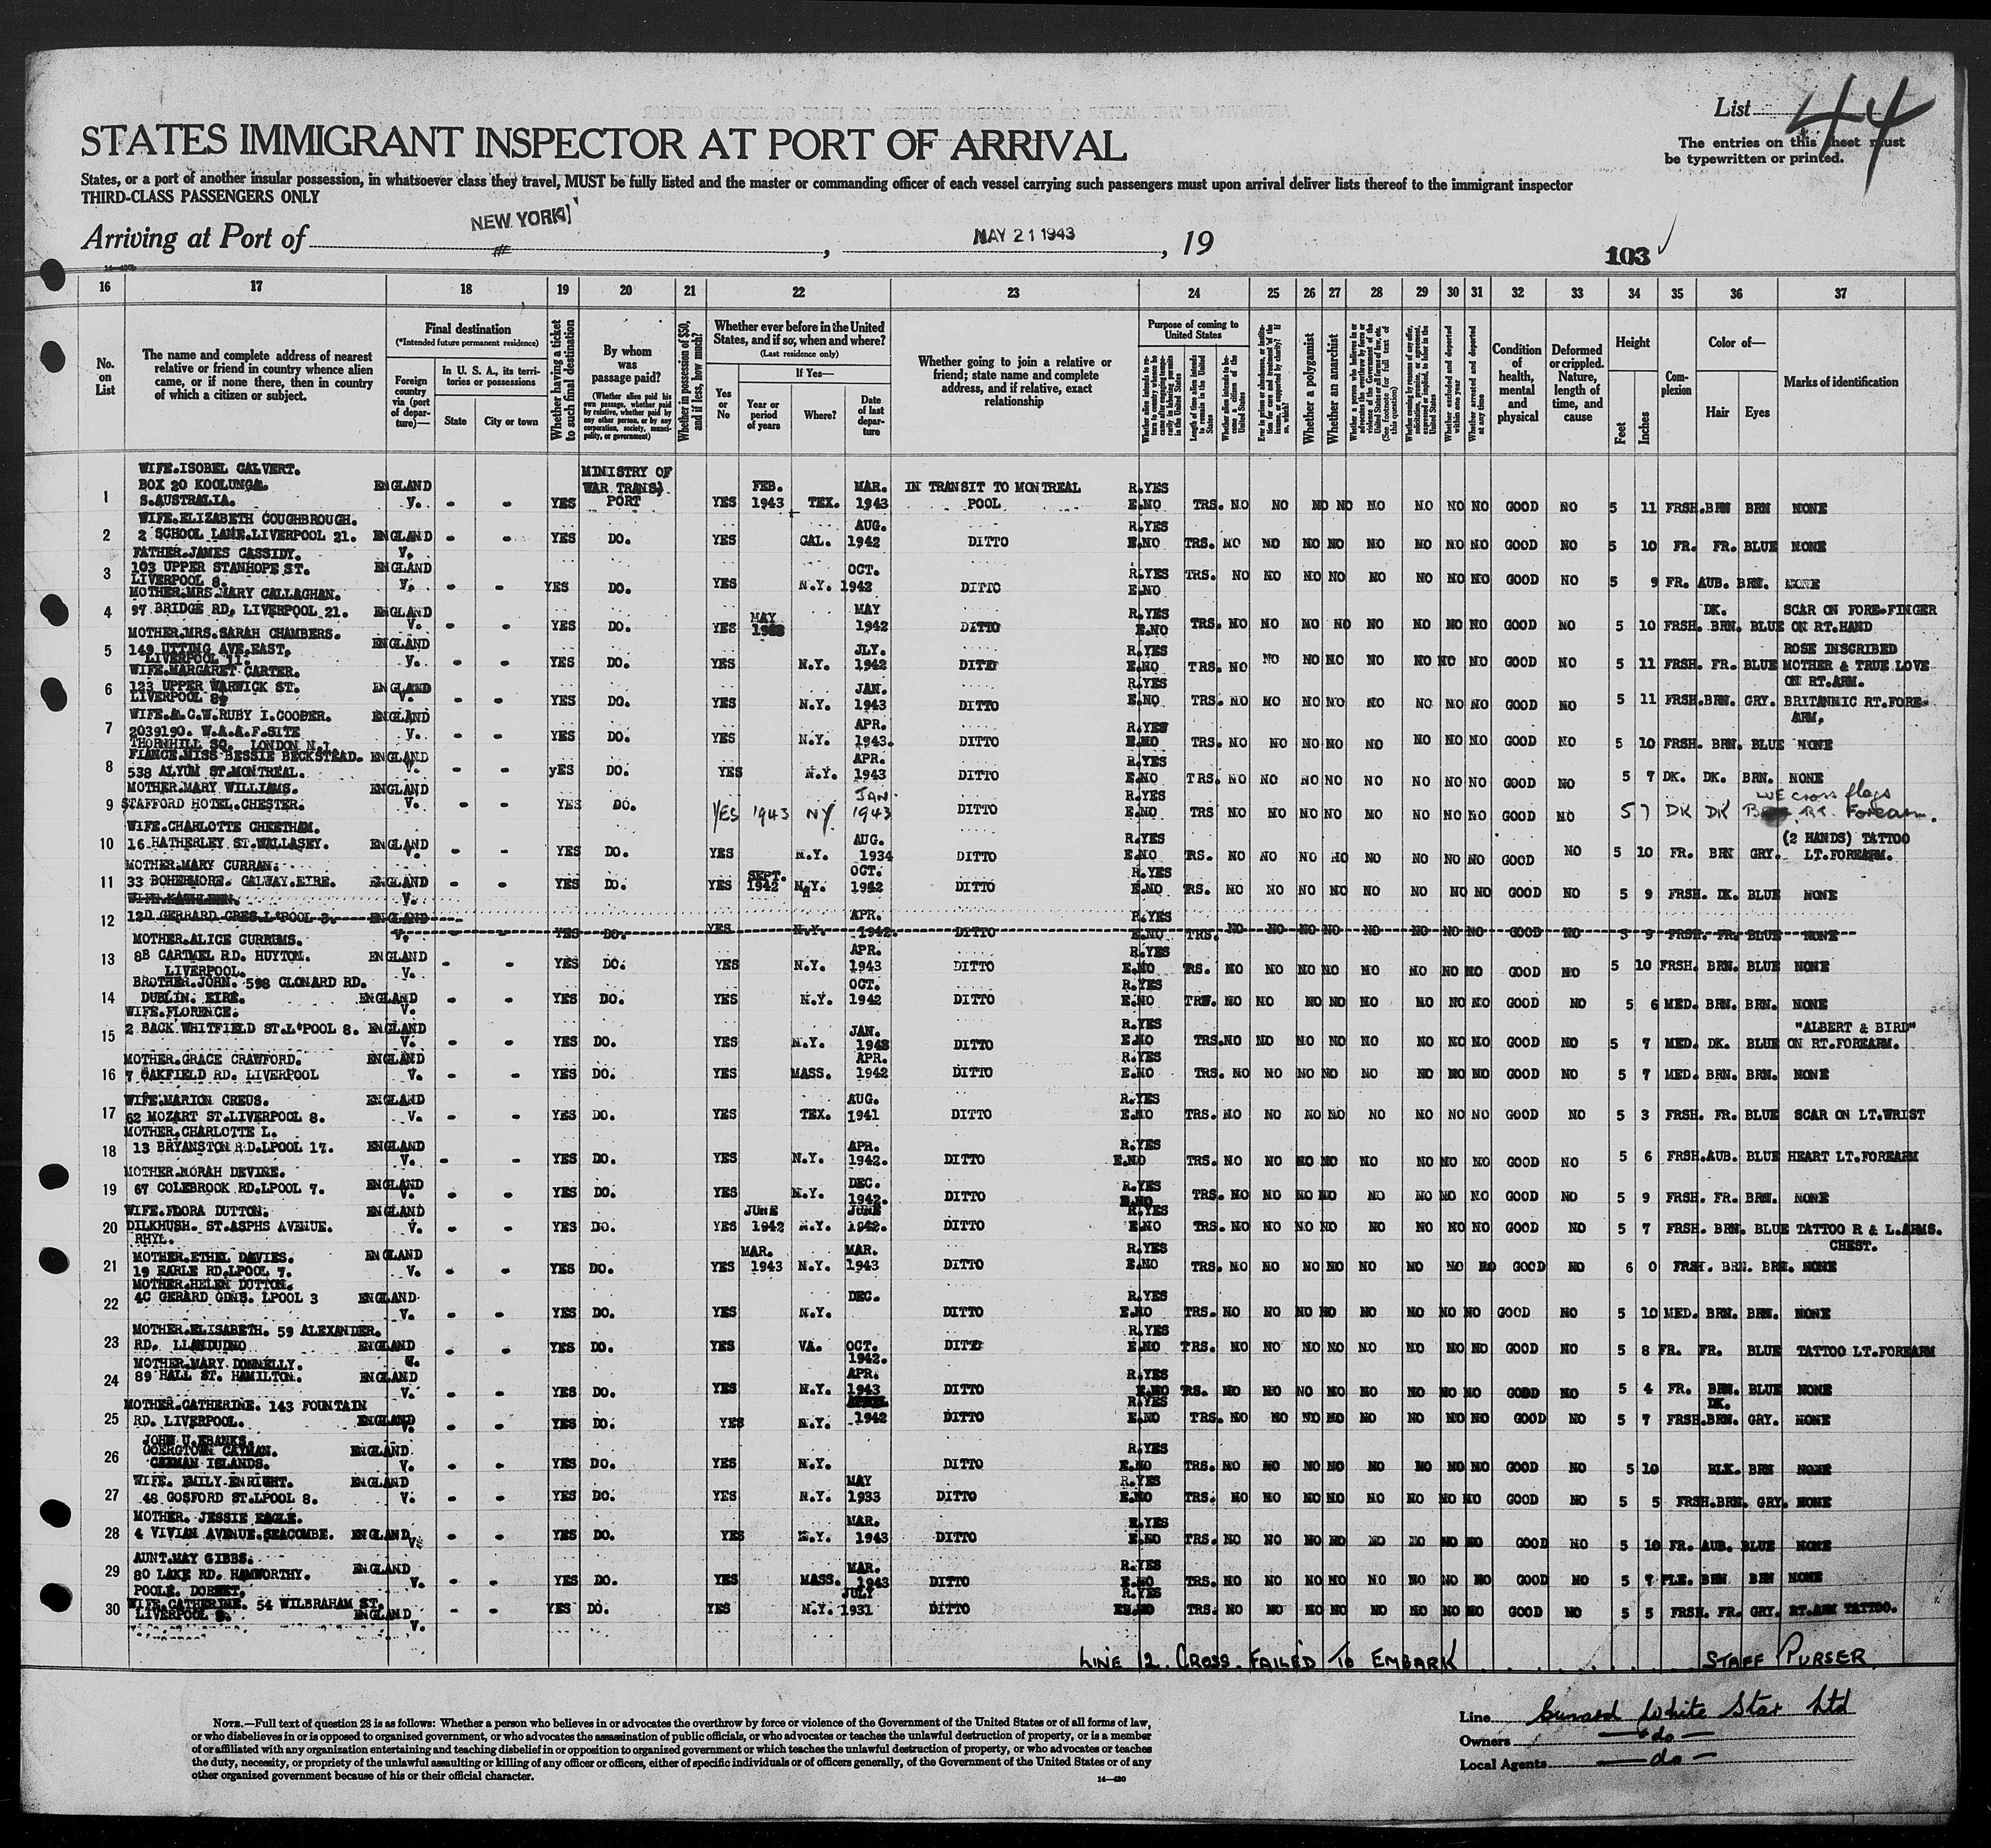 List 44
The entries on this sheet must
be typewritten or printed.
STATES IMMIGRANT INSPECTOR AT PORT OF ARRIVAL
States, or a port of another insular possession, in whatsoever class they travel, MUST be fully listed and the master or commanding officer of each vessel carrying such passengers must upon arrival deliver lists thereof to the immigrant inspector
THIRD-CLASS PASSENGERS ONLY
Arriving at Port of NEW YORK, MAY 21 1943, 19
103
16 17 18 19 20 21 22 23 24 25 26 27 28 29 30 31 32 33 34 35 36 37
No. on List
The name and complete address of nearest relative or friend in country whence alien came, or if none there, then in country of which a citizen or subject.
Final destination
(*Intended future permanent residence)
Foreign country via (port of departure)—
In U. S. A., its territories or possessions
State
City or town
Whether having a ticket to such final destination
By whom was passage paid?
(Whether alien paid his own passage, whether paid by relative, whether paid by any other person, or by any corporation, society, municipality, or government)
Whether in possession of $50, and if less, how much?
Whether ever before in the United States, and if so, when and where?
(Last residence only)
Yes or No
If Yes—
Year or period of years
Where?
Date of last departure
Whether going to join a relative or friend; state name and complete address, and if relative, exact relationship
Purpose of coming to United States
Length of time alien intends to remain in the United States
Whether alien intends to become a citizen of the United States
Whether a polygamist
Whether an anarchist
Whether excluded and deported within one year
Whether arrested and deported at any time
Condition of health, mental and physical
Deformed or crippled. Nature, length of time, and cause
Height
Feet
Inches
Complexion
Color of—
Hair
Eyes
Marks of identification
1 WIFE.ISOBEL CALVERT. BOX 20 KOOLUNGA. S.AUSTRALIA. ENGLAND V. - - YES MINISTRY OF WAR TRANS) PORT YES FEB. 1943 TEX. MAR. 1943 IN TRANSIT TO MONTREAL POOL R.YES E.NO TRS. NO NO NO NO NO NO NO NO GOOD NO 5 11 FRSH. BRN BRN NONE
2 WIFE.ELIZABETH COUGHBROUGH. 2 SCHOOL LANE.LIVERPOOL 21. ENGLAND V. - - YES DO. YES CAL. AUG. 1942 DITTO R.YES E.NO TRS. NO NO NO NO NO NO NO NO GOOD NO 5 10 FR. FR. BLUE NONE
3 FATHER.JAMES CASSIDY. 103 UPPER STANHOPE ST. LIVERPOOL 8. ENGLAND V. - - YES DO. YES N.Y. OCT. 1942 DITTO R.YES E.NO TRS. NO NO NO NO NO NO NO NO GOOD NO 5 9 FR. AUB. BRN. NONE
4 MOTHER.MRS.MARY CALLAGHAN. 97 BRIDGE RD. LIVERPOOL 21. ENGLAND V. - - YES DO. YES MAY MAY 1942 DITTO R.YES E.NO TRS. NO NO NO NO NO NO NO NO GOOD NO 5 10 FRSH. DK. BRN. BLUE SCAR ON FORE-FINGER ON RT.HAND
5 MOTHER.MRS.SARAH CHAMBERS. 149 UTTING AVE.EAST. LIVERPOOL 11. ENGLAND V. - - YES DO. YES N.Y. JLY. 1942 DITTO R.YES E.NO TRS. NO NO NO NO NO NO NO NO GOOD NO 5 11 FRSH. FR. BLUE ROSE INSCRIBED MOTHER & TRUE LOVE ON RT.ARM.
6 WIFE.MARGARET CARTER. 123 UPPER WARWICK ST. LIVERPOOL 8. ENGLAND V. - - YES DO. YES N.Y. JAN. 1943 DITTO R.YES E.NO TRS. NO NO NO NO NO NO NO NO GOOD NO 5 11 FRSH.BRN. GRY. BRITANNIC RT.FORE-ARM.
7 WIFE.A.C.W.RUBY I.COOPER. 2039190. W.A.A.F.SITE THORNHILL SQ. LONDON N.1. ENGLAND V. - - YES DO. YES N.Y. APR. 1943. DITTO R.YES E.NO TRS. NO NO NO NO NO NO NO NO GOOD NO 5 10 FRSH. BRN. BLUE NONE
8 FIANCE.MISS BESSIE BECKSTEAD. 538 ALYUM ST.MONTREAL. ENGLAND V. - - yES DO. YES N.Y. APR. 1943 DITTO R.YES E.NO TRS. NO NO NO NO NO NO NO NO GOOD NO 5 7 DK. DK. BRN. NONE
9 MOTHER.MARY WILLIAMS. STAFFORD HOTEL.CHESTER. ENGLAND V. - - YES DO. YES 1943 NY JAN 1943 DITTO R.YES E.NO TRS NO NO NO NO NO NO NO NO GOOD NO 5 7 DK DK cross flags RT. Forearm.
10 WIFE.CHARLOTTE CHEETHAM. 16 HATHERLEY ST.WALLASEY. ENGLAND V. - - YES DO. YES N.Y. AUG. 1934 DITTO R.YES E.NO TRS. NO NO NO NO NO NO NO NO GOOD NO 5 10 FR. BRN GRY. (2 HANDS) TATTOO LT.FOREARM.
11 MOTHER.MARY CURRAN. 33 BOHERMORE. GALWAY.EIRE. ENGLAND V. - - YES DO. YES SEPT. 1942 N.Y. OCT. 1942 DITTO R.YES E.NO TRS. NO NO NO NO NO NO NO NO GOOD NO 5 9 FRSH. DK. BLUE NONE
12 WIFE.KATHLEEN. 12D GERRARD CRES.L'POOL 3. ENGLAND V. YES DO. YES N.Y. APR. 1942. DITTO R.YES E.NO TRS. NO NO NO NO NO NO NO NO GOOD NO 5 9 FRSH. FR. BLUE NONE
13 MOTHER.ALICE GURRUMS. 8B CARTMEL RD. HUYTON. LIVERPOOL. ENGLAND V. - - YES DO. YES N.Y. APR. 1943 DITTO R.YES E.NO TRS. NO NO NO NO NO NO NO NO GOOD NO 5 10 FRSH. BRN. BLUE NONE
14 BROTHER.JOHN. 598 CLONARD RD. DUBLIN. EIRE. ENGLAND V. - - YES DO. YES N.Y. OCT. 1942 DITTO R.YES E.NO TRS. NO NO NO NO NO NO NO NO GOOD NO 5 6 MED. BRN. BRN. NONE
15 WIFE.FLORENCE. 2 BACK WHITFIELD ST.L'POOL 8. ENGLAND V. - - YES DO. YES N.Y. JAN. 1943 DITTO R.YES E.NO TRS. NO NO NO NO NO NO NO NO GOOD NO 5 7 MED. DK. BLUE "ALBERT & BIRD" ON RT.FOREARM.
16 MOTHER.GRACE CRAWFORD. 7 OAKFIELD RD. LIVERPOOL ENGLAND V. - - YES DO. YES MASS. APR. 1942 DITTO R.YES E.NO TRS. NO NO NO NO NO NO NO NO GOOD NO 5 7 MED. BRN. BRN. NONE
17 WIFE.MARION CREUS. 62 MOZART ST.LIVERPOOL 8. ENGLAND V. - - YES DO. YES TEX. AUG. 1941 DITTO R.YES E.NO TRS. NO NO NO NO NO NO NO NO GOOD NO 5 3 FRSH. FR. BLUE SCAR ON LT.WRIST
18 MOTHER.CHARLOTTE L. 13 BRYANSTON RD.LPOOL 17. ENGLAND V. - - YES DO. YES N.Y. APR. 1942. DITTO R.YES E.NO TRS. NO NO NO NO NO NO NO NO GOOD NO 5 6 FRSH.AUB. BLUE HEART LT.FOREARM
19 MOTHER.NORAH DEVINE. 67 COLEBROOK RD.LPOOL 7. ENGLAND V. - - YES DO. YES N.Y. DEC. 1942. DITTO R.YES E.NO TRS. NO NO NO NO NO NO NO NO GOOD NO 5 9 FRSH. FR. BRN. NONE
20 WIFE.FLORA DUTTON. DILKHUSH. ST.ASPHS AVENUE. RHYL. ENGLAND V. - - YES DO. YES JUNE 1942 N.Y. JUNE 1942. DITTO R.YES E.NO TRS. NO NO NO NO NO NO NO NO GOOD NO 5 7 FRSH. BRN. BLUE TATTOO R & L.ARMS. CHEST.
21 MOTHER.ETHEL DAVIES. 19 EARLE RD.LPOOL 7. ENGLAND V. - - YES DO. YES MAR. 1943 N.Y. MAR. 1943 DITTO R.YES E.NO TRS. NO NO NO NO NO NO NO NO GOOD NO 6 0 FRSH. BRN. BRN. NONE
22 MOTHER.HELEN DUTTON. 4C GERARD GDNS. LPOOL 3 ENGLAND V. - - YES DO. YES N.Y. DEC. DITTO R.YES E.NO TRS. NO NO NO NO NO NO NO NO GOOD NO 5 10 MED. BRN. BRN. NONE
23 MOTHER.ELISABETH. 59 ALEXANDER. RD. LLANDUDNO ENGLAND V. - - YES DO. YES VA. OCT. 1942. DITTO R.YES E.NO TRS. NO NO NO NO NO NO NO NO GOOD NO 5 8 FR. FR. BLUE TATTOO LT.FOREARM
24 MOTHER.MARY DONNELLY. 89 HALL ST. HAMILTON. ENGLAND V. - - YES DO. YES N.Y. APR. 1943 DITTO R.YES E.NO TRS. NO NO NO NO NO NO NO NO GOOD NO 5 4 FR. BRN. BLUE NONE
25 MOTHER.CATHERINE. 143 FOUNTAIN RD. LIVERPOOL. ENGLAND V. - - YES DO. YES N.Y. 1942 DITTO R.YES E.NO TRS. NO NO NO NO NO NO NO NO GOOD NO 5 7 FRSH. DK. BRN. GRY. NONE
26 JOHN U.EBANKS. GOERGTOWN CAYMAN. CAYMAN ISLANDS. ENGLAND V. - - YES DO. YES N.Y. DITTO R.YES E.NO TRS. NO NO NO NO NO NO NO NO GOOD NO 5 10 BLK. BRN NONE
27 WIFE. EMILY ENRIGHT. 48 GOSFORD ST.LPOOL 8. ENGLAND V. - - YES DO. YES N.Y. MAY 1933 DITTO R.YES E.NO TRS. NO NO NO NO NO NO NO NO GOOD NO 5 5 FRSH.BRN. GRY. NONE
28 MOTHER. JESSIE EAGLE. 4 VIVIAN AVENUE.SEACOMBE. ENGLAND V. - - YES DO. YES N.Y. MAR. 1943 DITTO R.YES E.NO TRS. NO NO NO NO NO NO NO NO GOOD NO 5 10 FR. AUB. BLUE NONE
29 AUNT.MAY GIBBS. 80 LAKE RD. HAMWORTHY. POOLE. DORSET. ENGLAND V. - - YES DO. YES MASS. MAR. 1943 DITTO R.YES E.NO TRS. NO NO NO NO NO NO NO NO GOOD NO 5 7 PLE. BRN BRN NONE
30 WIFE.CATHERINE. 54 WILBRAHAM ST. LIVERPOOL ENGLAND V. - - YES DO. YES N.Y. JULY 1931 DITTO R.YES E.NO TRS. NO NO NO NO NO NO NO NO GOOD NO 5 5 FRSH. FR. GRY. RT.ARM TATTOO.
LINE 12. CROSS. FAILED TO EMBARK STAFF PURSER
NOTE.—Full text of question 28 is as follows: Whether a person who believes in or advocates the overthrow by force or violence of the Government of the United States or of all forms of law,
or who disbelieves in or is opposed to organized government, or who advocates the assassination of public officials, or who advocates or teaches the unlawful destruction of property, or is a member
of or affiliated with any organization entertaining and teaching disbelief in or opposition to organized government or which teaches the unlawful destruction of property, or who advocates or teaches
the duty, necessity, or propriety of the unlawful assaulting or killing of any officer or officers, either of specific individuals or of officers generally, of the Government of the United States or of any
other organized government because of his or their official character.
14—430
Line Cunard White Star Ltd
Owners —do—
Local Agents —do—